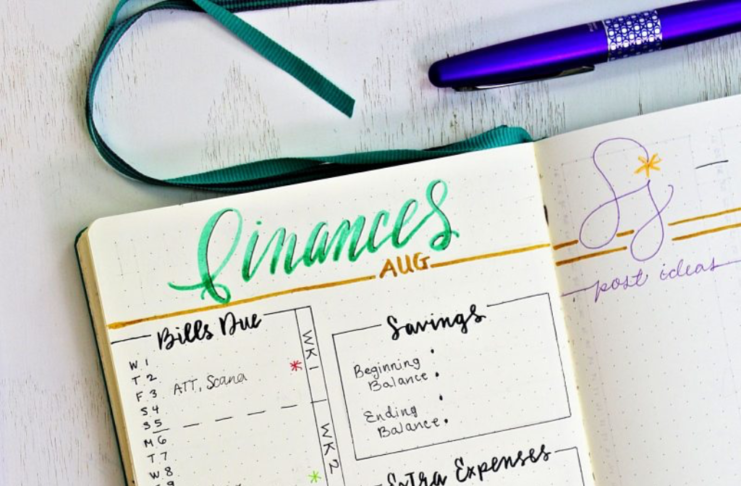 finances
AUG
Bills Due
W 1
T 2
F 3 ATT, Scana
S 4
S 5
M 6
T 7
W 8
WK 1
WK 2
Savings
Beginning
Balance:
Ending
Balance:
Extra Expenses
Sj
post ideas